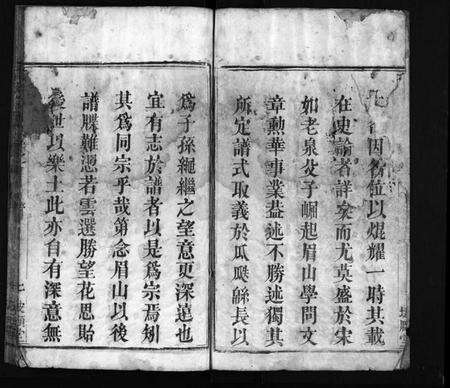 因名位以焜耀一時其載
在史諭者詳矣而尤莫盛於宋
如老泉父子崛起眉山學問文
章勲華事業葢述不勝述獨其
所定譜式取義於瓜瓞緜長以
爲子孫繩繼之望意更深遠也
宜有志於譜者以是爲宗焉矧
其爲同宗乎哉第念眉山以後
譜牒難慿若雲選勝望花思貽
世以樂土此亦自有深意無